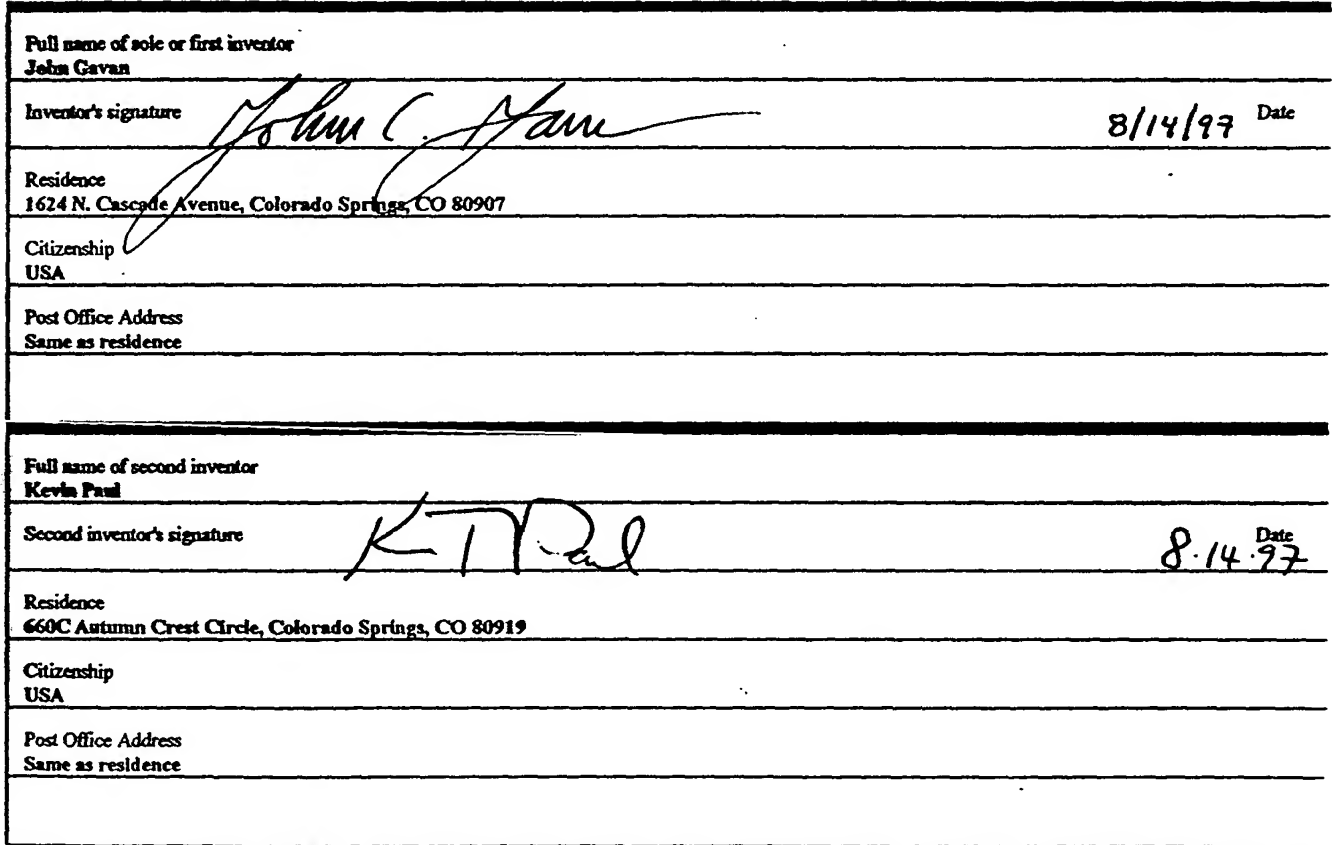 Full name of sole or first inventor
John Gavan
Inventor's signature John C. Gavan 8/14/97 Date
Residence
1624 N. Cascade Avenue, Colorado Springs, CO 80907
Citizenship
USA
Post Office Address
Same as residence
Full name of second inventor
Kevin Paul
Second inventor's signature K T Paul 8.14.97 Date
Residence
660C Autumn Crest Circle, Colorado Springs, CO 80919
Citizenship
USA
Post Office Address
Same as residence